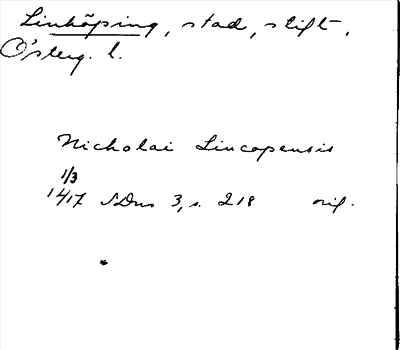 Linköping, stad, stift,
Österg. l.
Nicholai Lincopensis
1/3
1417 SDns 3, s. 218 orig.
*